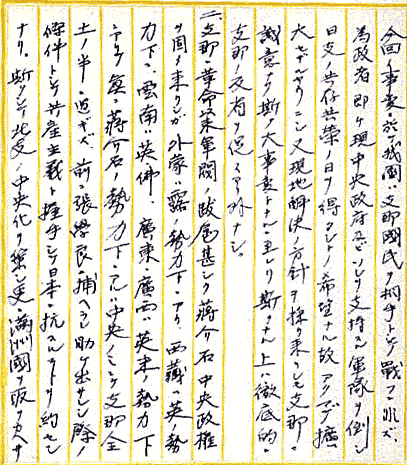 今回ノ事変ニ於テ我国ハ支那國民ヲ相手トシテ戦フニ非ズ、
為政者即チ現中央政府及ビソレヲ支持スル軍隊ヲ倒シ
日支ノ共存共榮ノ日ヲ得ントノ希望ナル故アクマデ擴
大セザルヤウニシ又現地解決ノ方針ヲ採リ来タレルモ支那ノ
誠意ナク斯ノ大事変トナルニ至レリ斯クナル上ハ徹底的ニ
支那ノ反省ヲ促スヨリ外ナシ。
二、支那ハ革命以来軍閥ノ跋扈甚シク蒋介石中央政権
ヲ固メ来タルガ外蒙ハ露ノ勢力下ニアリ西藏ハ英ノ勢
力下ニ雲南ハ英佛、廣東、廣西ハ英米ノ勢力下
ニアリ真ニ蒋介石ノ勢力下ニアルハ中央クニシテ支那全
土ノ半ニ過ギズ、前ニ張学良ニ捕ヘラレ助ケ出サレシ際ノ
條件トシテ共産主義ト握手シテ日本ニ抗スルコトヲ約セシ
ナリ。斯クシテ北支ノ中央化ヲ策シ更ニ満洲國ヲ取リカヘサ